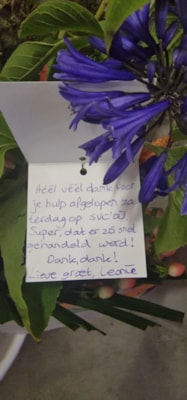 Héél véél dank voor
je hulp afgelopen za-
terdag op
Super, dat er zo snel
gehandeld werd!
Dank, dank!
Lieve groet, Leonie